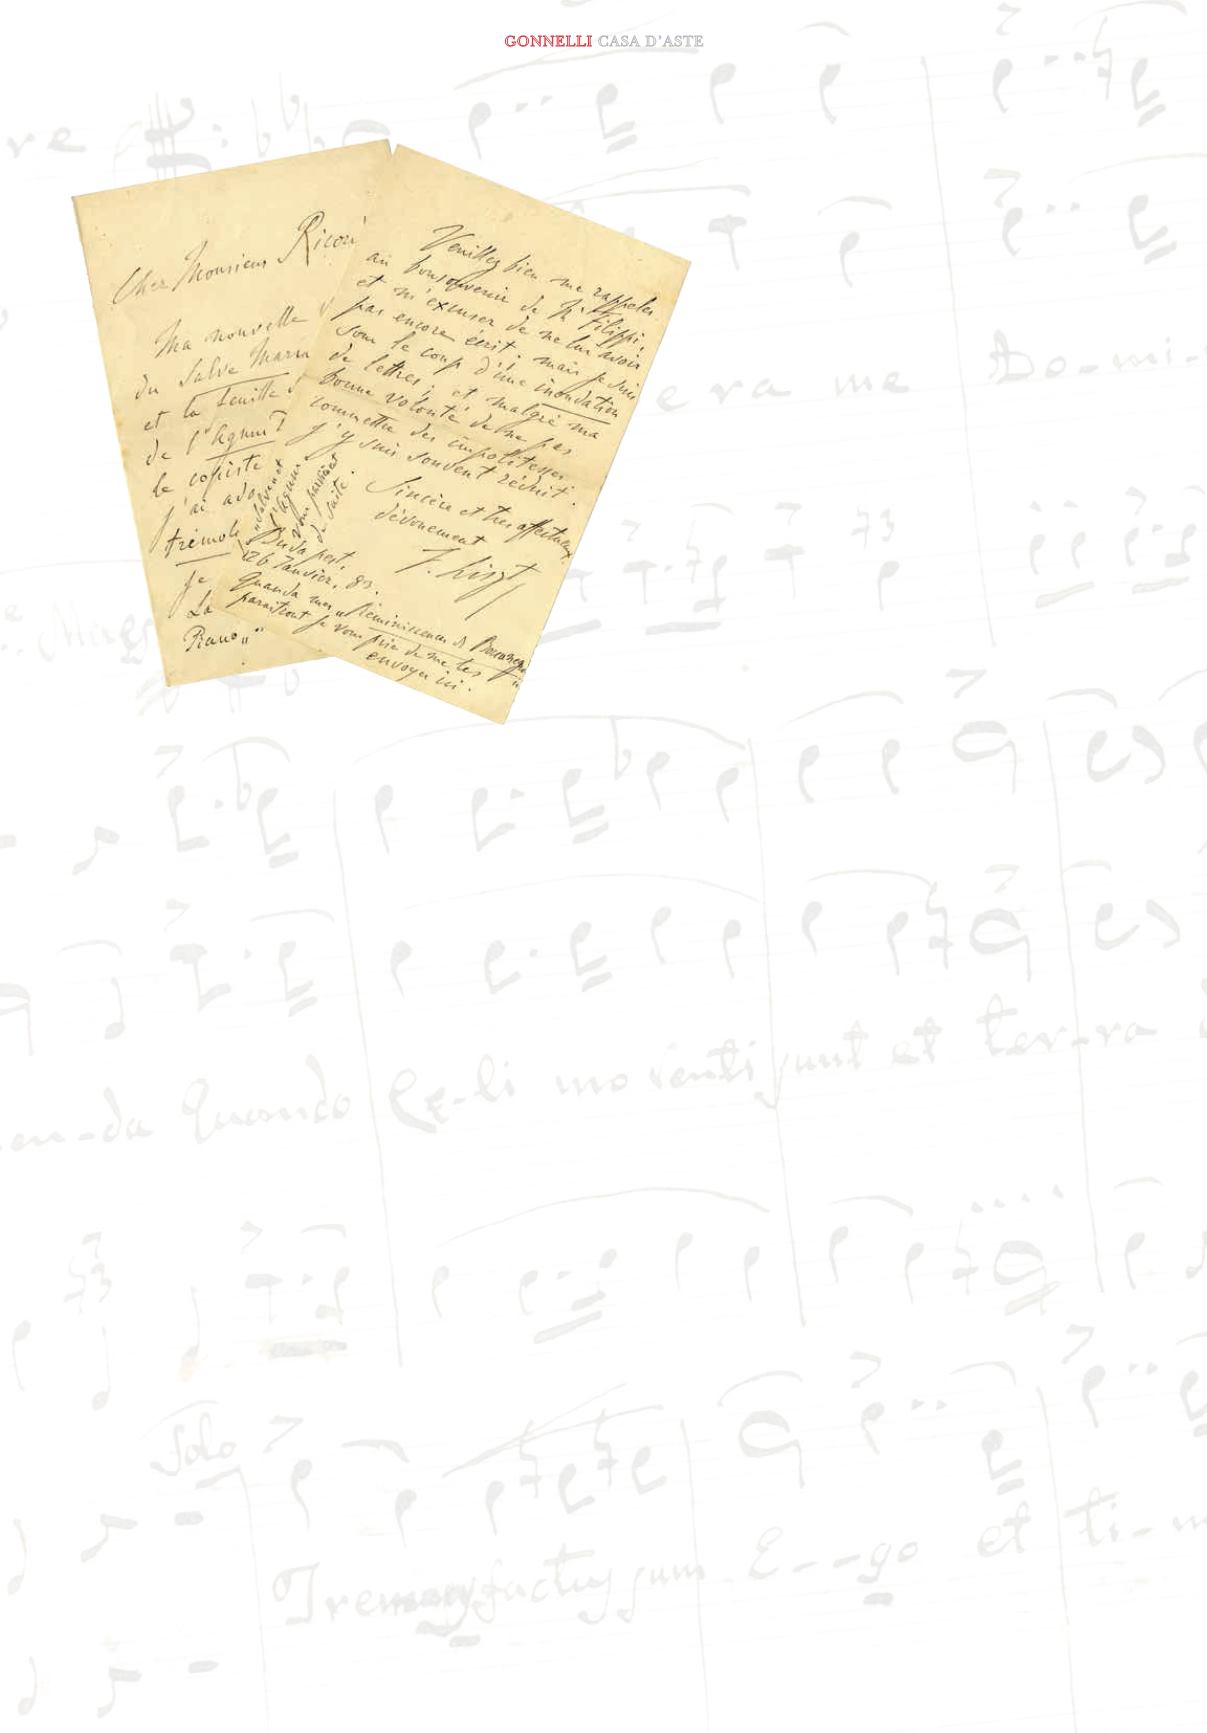 GONNELLI CASA D'ASTE
Cher Monsieur Ricor
Ma nouvelle
du Salve Maria
et la feuille
de l'Agnus
le copiste
j'ai
trémolo
Je
La
Piano
Veuillez bien me rappeler
au bon souvenir de Mr Filippi,
et m'excuser de ne lui avoir
pas encore écrit; mais je suis
sous le coup d'une inondation
de lettres; et malgré ma
bonne volonté de ne pas
commettre des impolitesses
j'y suis souvent réduit.
Sincère et très affectueux
dévouement
F. Liszt
Salve et
l'Agnus
vous paraissent
de suite.
Budapest,
26 Janvier, 83.
Quand mes "Réminiscences de Boccanegra"
paraitront je vous prie de me les
envoyer ici.
era me Do-mi-
en-da Quando Cœ-li movendi sunt et ter-ra
Solo
Tremens factus sum E--go et ti-m